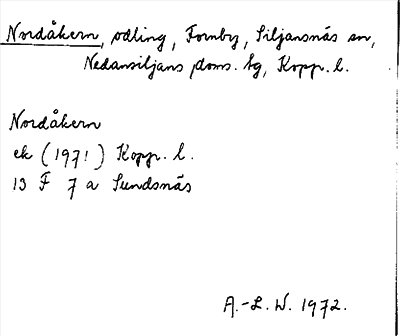 Nordåkern, odling, Fornby, Siljansnäs sn,
Nedansiljans doms. hg, Kopp. l.
Nordåkern
ek (1971) Kopp. l.
13 F 7 a Sundsnäs
A.-L. W. 1972.